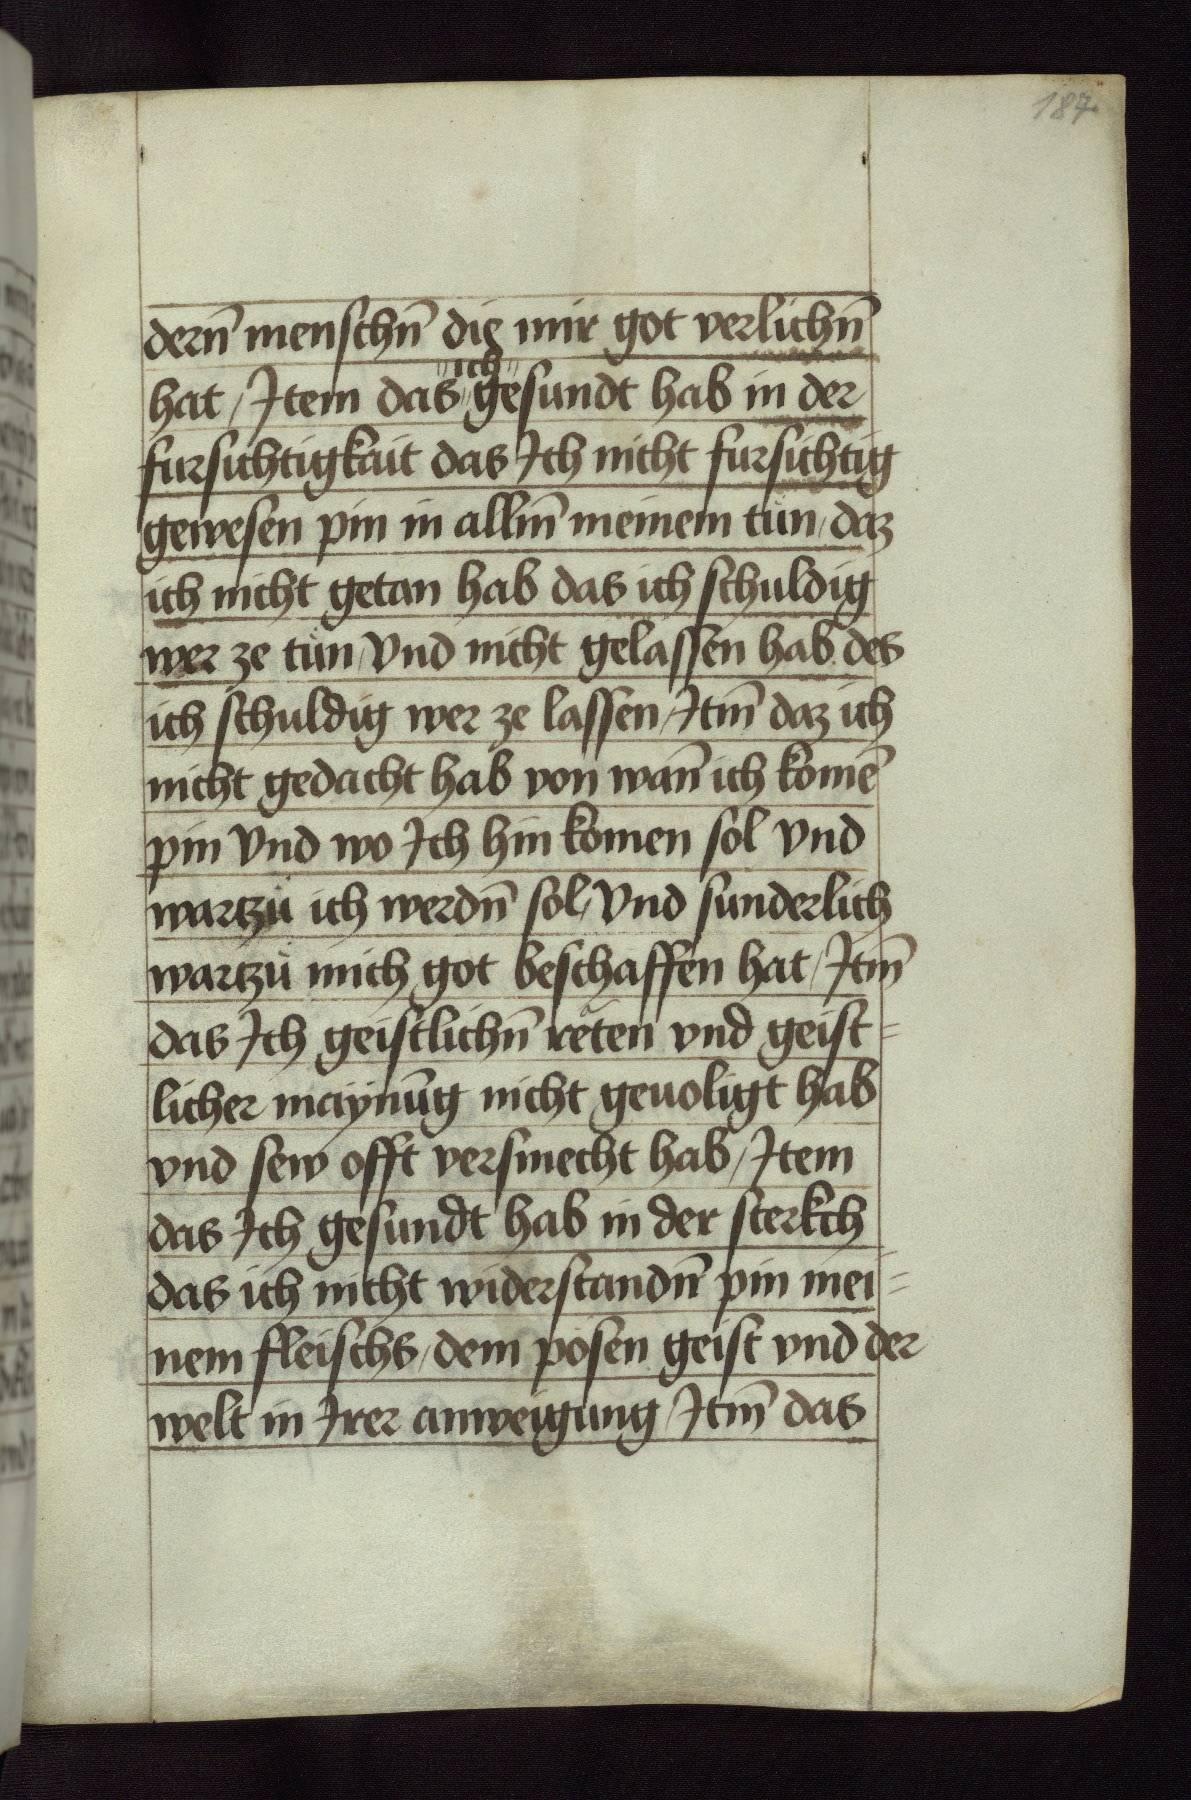 187
dern̄ menschn̄ die mir got verlichn̄
hat / Item das "ich" gesundt hab in der
fursichtigkait das Ich nicht fursichtig
gewesen pin in allm̄ meinem tün / daz
ich nicht getan hab das ich schuldig
wer ze tün / Vnd nicht gelassen hab des
ich schuldig wer ze lassen / Itm̄ daz ich
nicht gedacht hab von wan̄ ich komē
pin Vnd wo Ich hin komen sol Vnd
wartzů ich werdn̄ sol / Vnd sunderlich
wartzů mich got beschaffen hat / Itm̄
das Ich geistlichn̄ rëten vnd geist=
licher maynūg nicht geuoligt hab
vnd sew offt versmecht hab / Item
das Ich gesundt hab in der sterkch
das ich nicht widerstandn̄ pin mei=
nem fleischs / dem pösen geist vnd der
welt in Irer anweigung / Itm̄ das